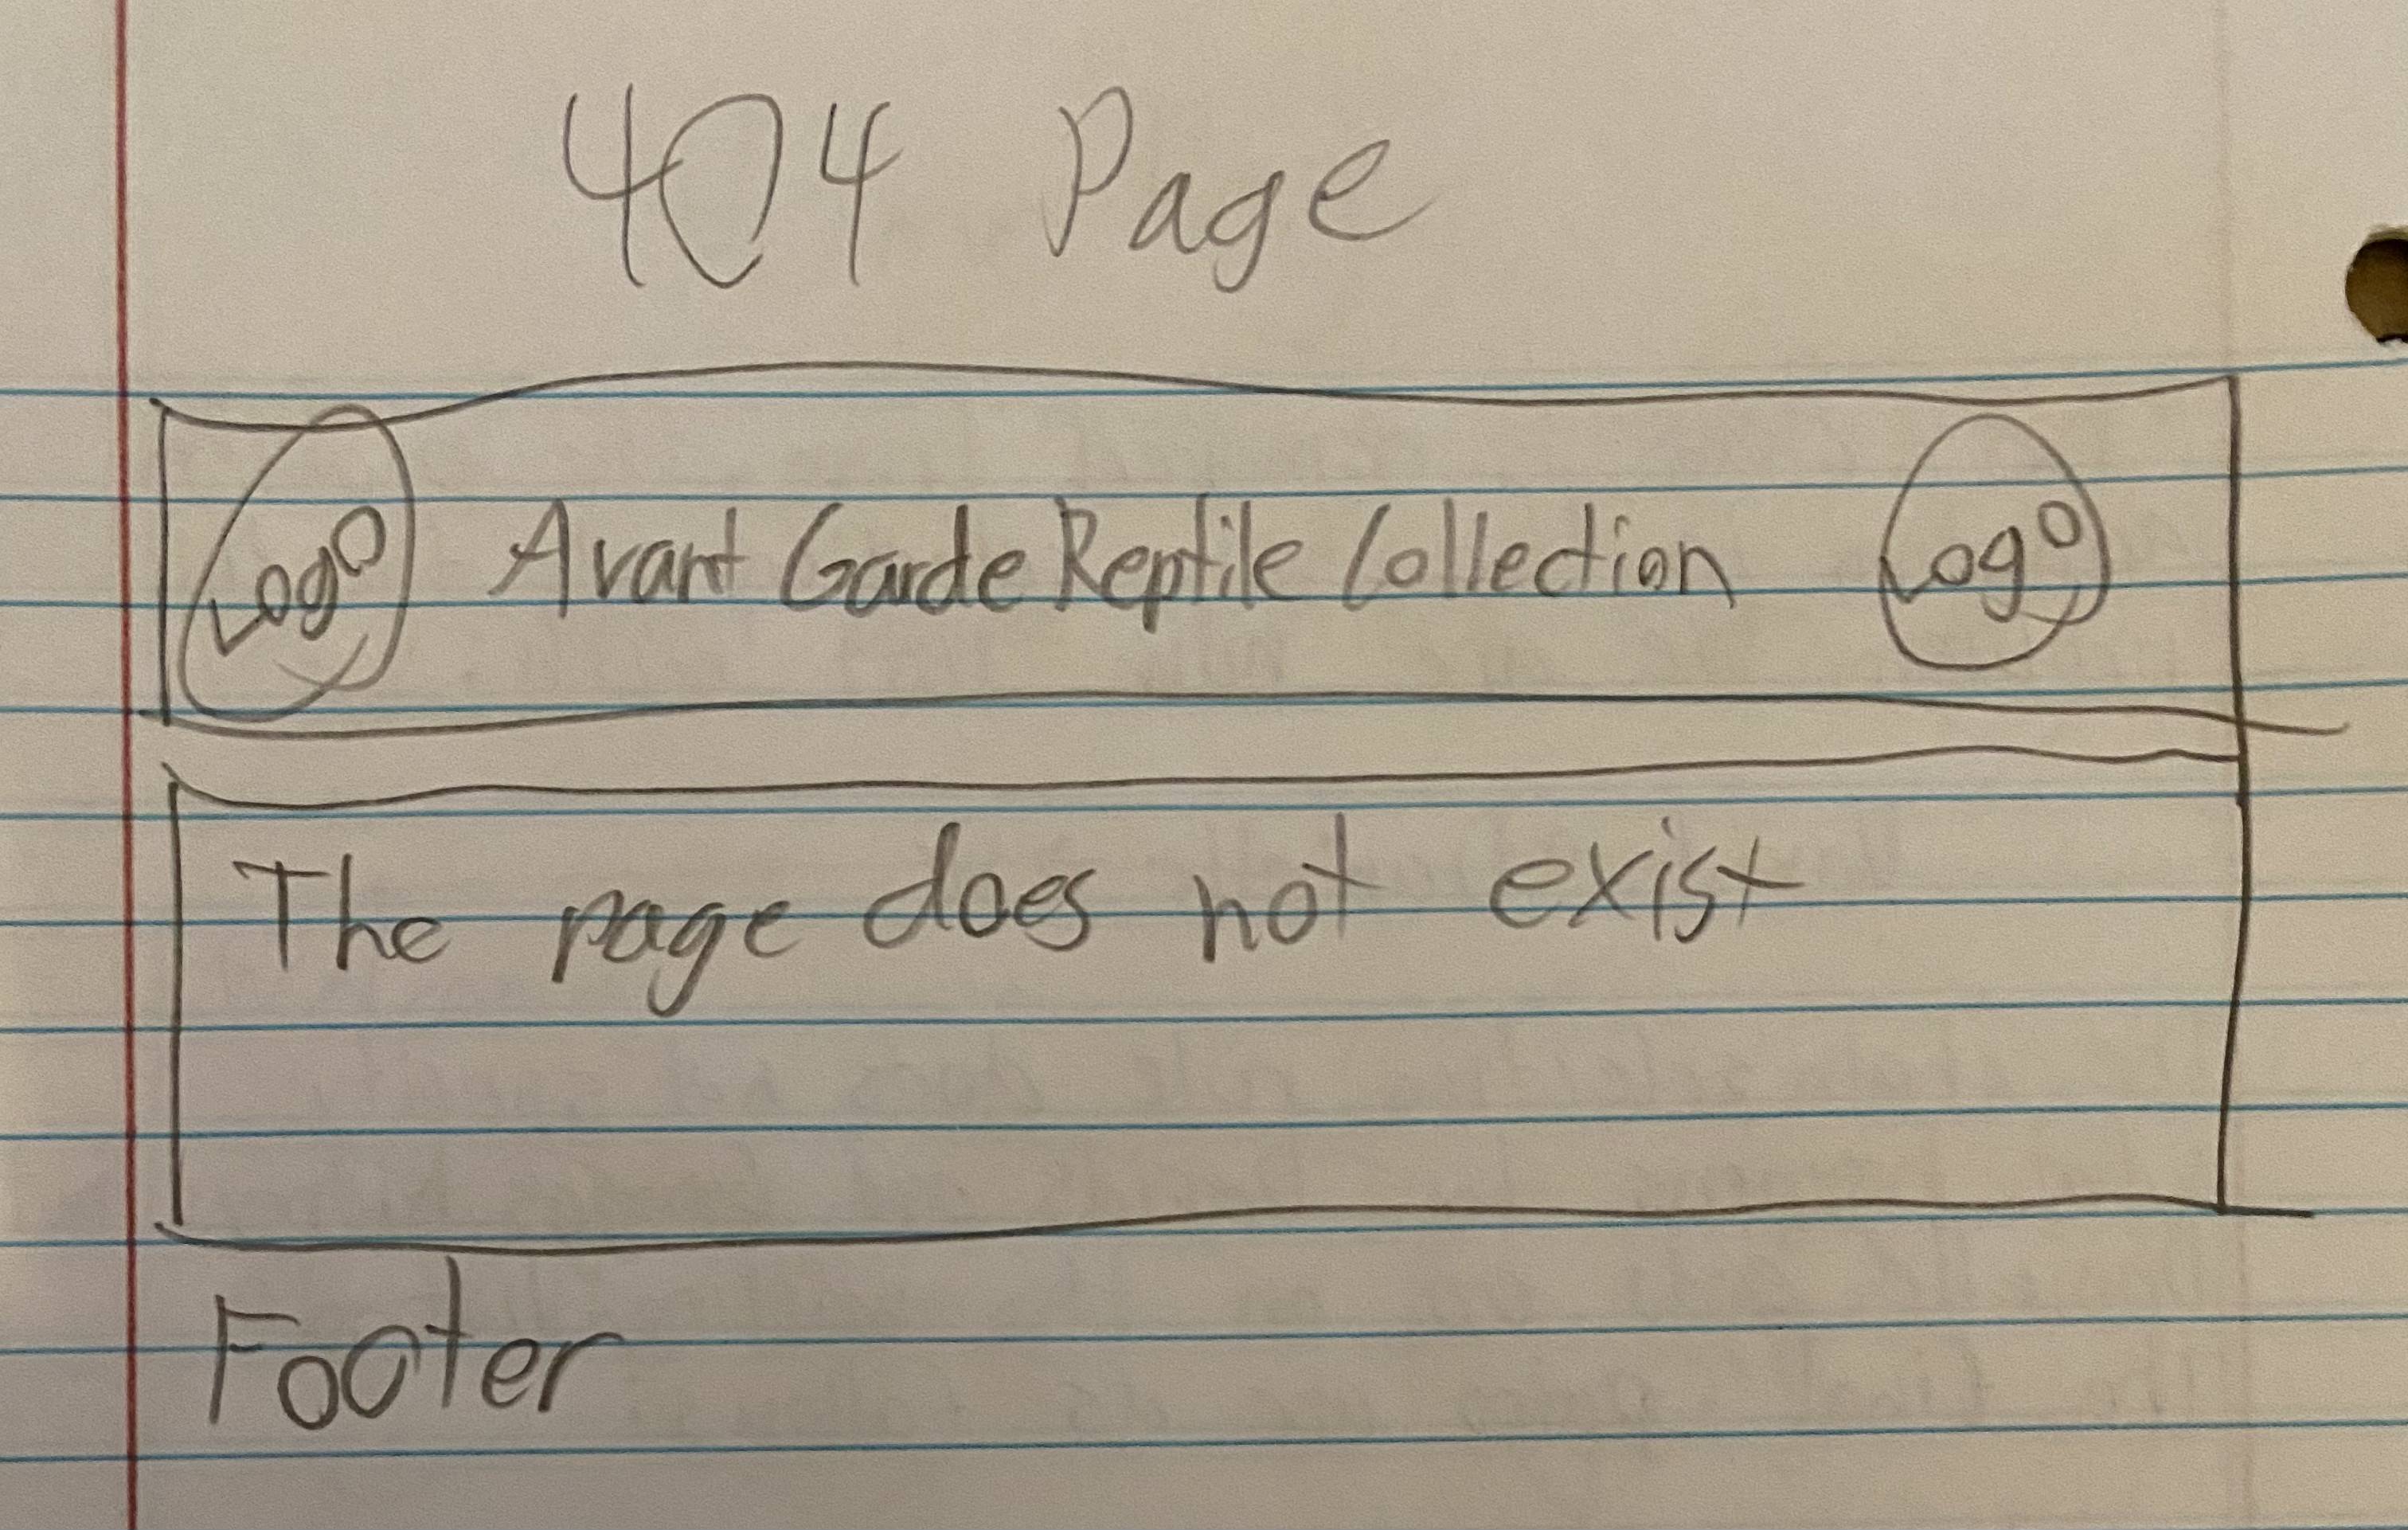 404 Page
Logo Avant Garde Reptile Collection Logo
The page does not exist
Footer